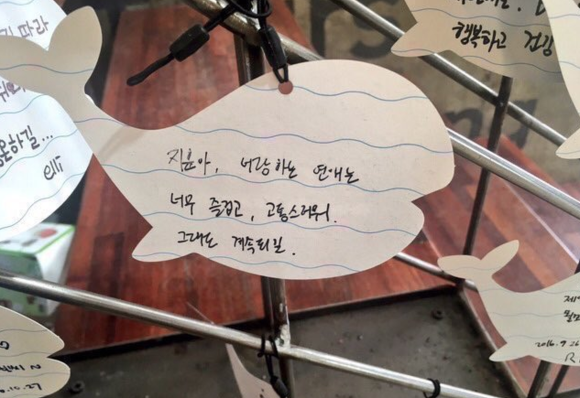 지윤아, 너랑 하는 연애는
너무 즐겁고, 고통스러워.
그래도 계속되길.
행복하고 건강
따라
하길...
2016. 9. 26
10. 27